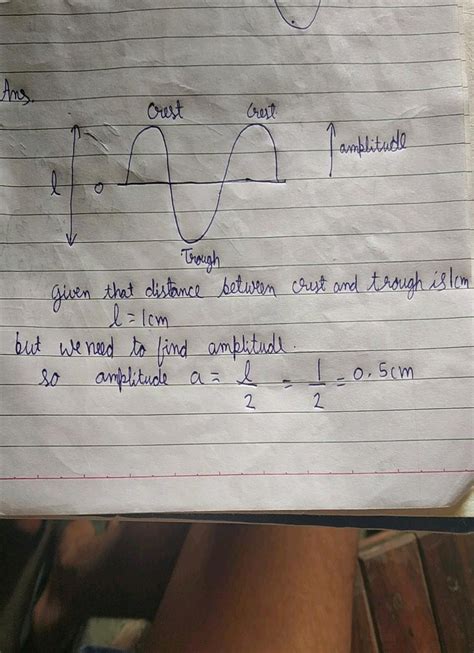 Ans.
Crest Crest
amplitude
l 0
Trough
given that distance between crest and trough is 1cm
l = 1cm
but we need to find amplitude.
so amplitude a = l/2 = 1/2 = 0.5cm